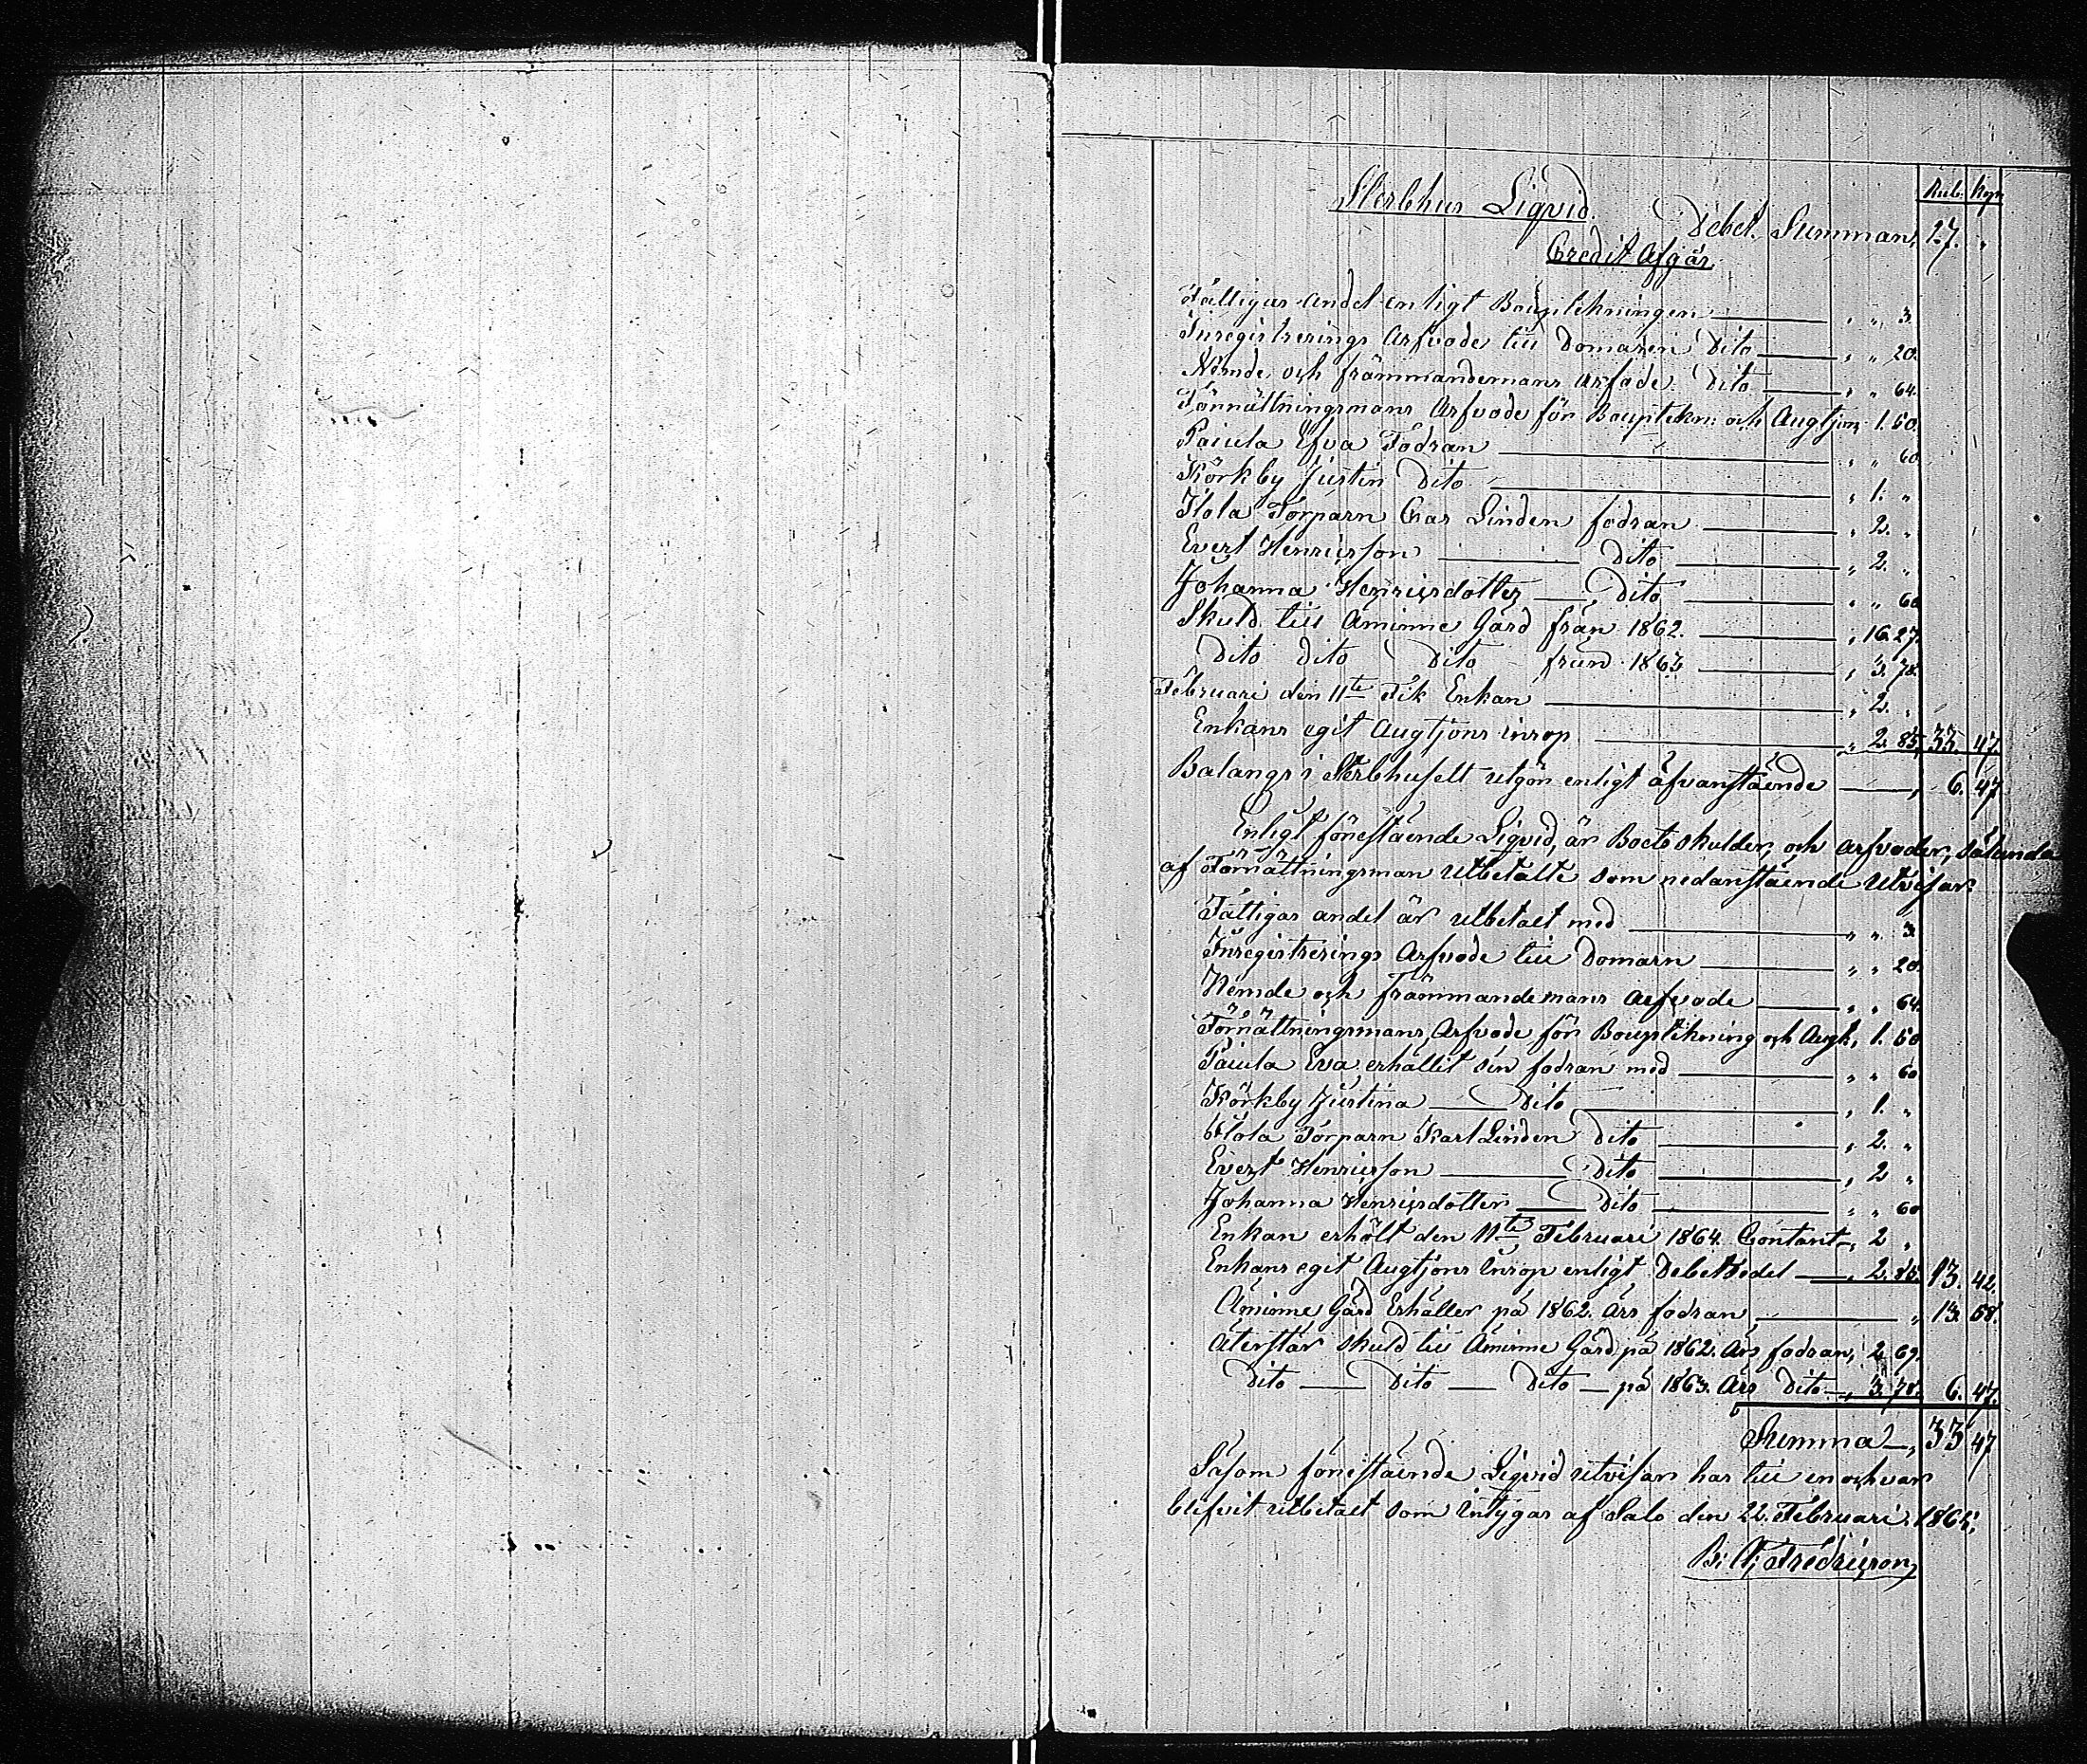 Rub. Kop.
Sterbhus Liqvid. Debet Summan, 27. "
Credit Afgår
Fattigas andel enligt Bouptekningen " " 3.
Inregistrerings Arfvode till Domaren Dito " " 20.
Nämde och främmandemans arfode Dito " " 64.
Förrättningsmans Arfvode för Bouptekn: och Augtjon, 1. 50.
Paiula Efva Fodran " " 60
Körkby Justin Dito " 1. "
Isola Torparn Car Linden fodran " 2. "
Evert Henricsson Dito " 2. "
Johanna Henricsdotter Dito " " 60
Skuld till Åminne Gård från 1862. " 16. 27.
Dito Dito Dito från 1863 " 3. 78.
Februari den 11te Fik Enkan " 2. "
Enkans egit Augtjons inrop " 2. 85, 33. 47.
Balangs i Sterbhusett utgör enligt åfvanstående " 6. 47
Enligt förestående Liqvid, är Boets skulder, och arfvoder, sålunda
af Förrättningsman utbetalte som nedanstående utvisar
Fattigas andel är utbetalt med " " 3.
Inregistrerings Arfvode till Domarn " " 20.
Nämde och Främmandemans arfvode " " 64.
Förrättningsmans, Arfvode för Bouptekning och Augt, 1. 50
Paiula Eva erhållit sin fodran med " " 60
Körkby Justina Dito " 1. "
Isola Torparn Karl Linden Dito " 2. "
Evert Henricsson Dito " 2 "
Johanna Henricsdotter Dito " " 60
Enkan erhölt den 11te Februari 1864. Contant " 2 "
Enkans egit Augtjons inrop enligt Debetsedel " 2. 85. 13. 42.
Åminne Gård Erhåller på 1862. Års fodran " 13. 58.
Återstår skuld till Åminne Gård på 1862. Års fodran, 2. 69.
Dito Dito Dito på 1863. Års Dito " 3. 78. 6. 47.
Summa " 33 47
Såsom förestående Liqvid utvisar har till en och var
blifvit utbetalt som intygas af Salo den 22. Februari.
Fredricson,